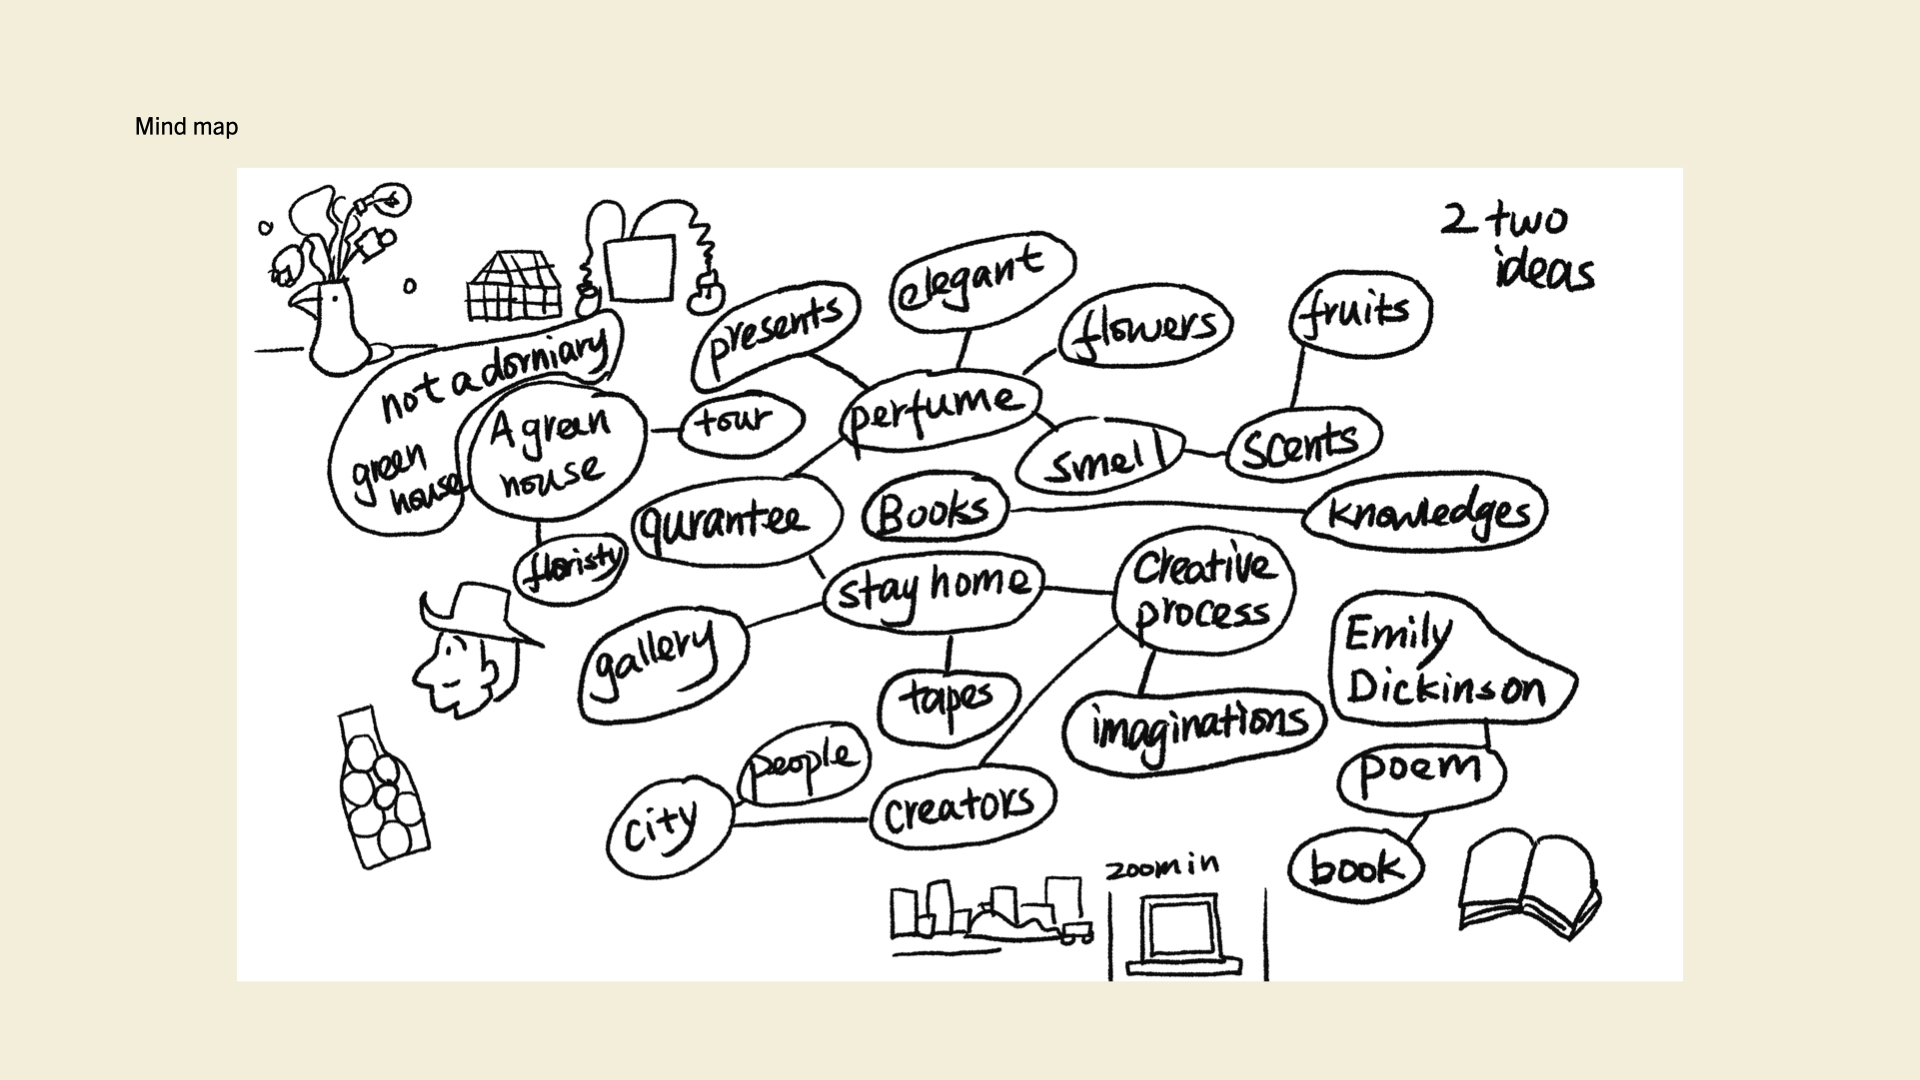 Mind map
2 two
ideas
elegant
presents
flowers
fruits
not a dorniary
green
house
A green
house
tour
perfume
smell
scents
qurantee
Books
knowledges
floristy
stay home
Creative
process
gallery
tapes
imaginations
Emily
Dickinson
people
poem
city
creators
zoom in
book